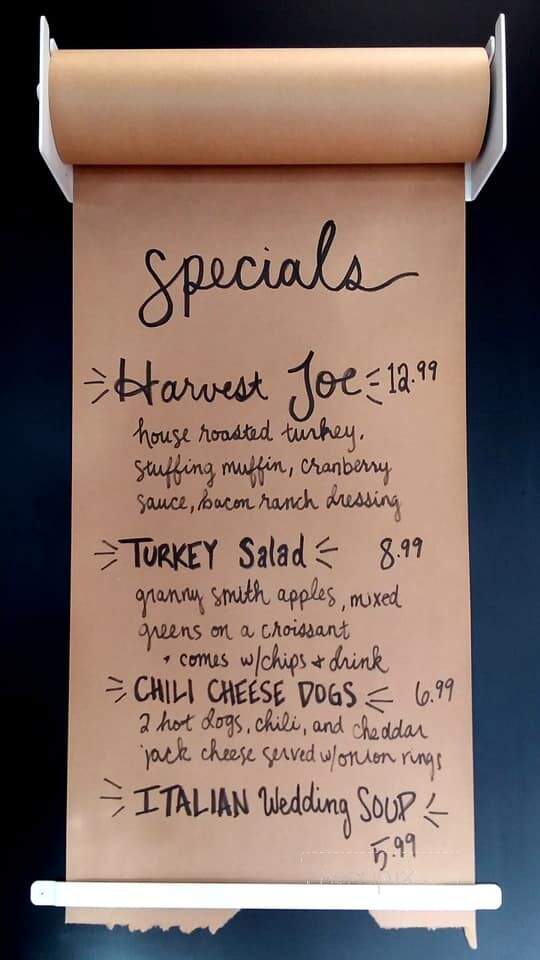 Specials
Harvest Joe 12.99
house roasted turkey,
stuffing muffin, cranberry
sauce, bacon ranch dressing
TURKEY Salad 8.99
granny smith apples, mixed
greens on a croissant
• comes w/chips & drink
CHILI CHEESE DOGS 6.99
2 hot dogs, chili, and cheddar
jack cheese served w/onion rings
ITALIAN Wedding SOUP
5.99